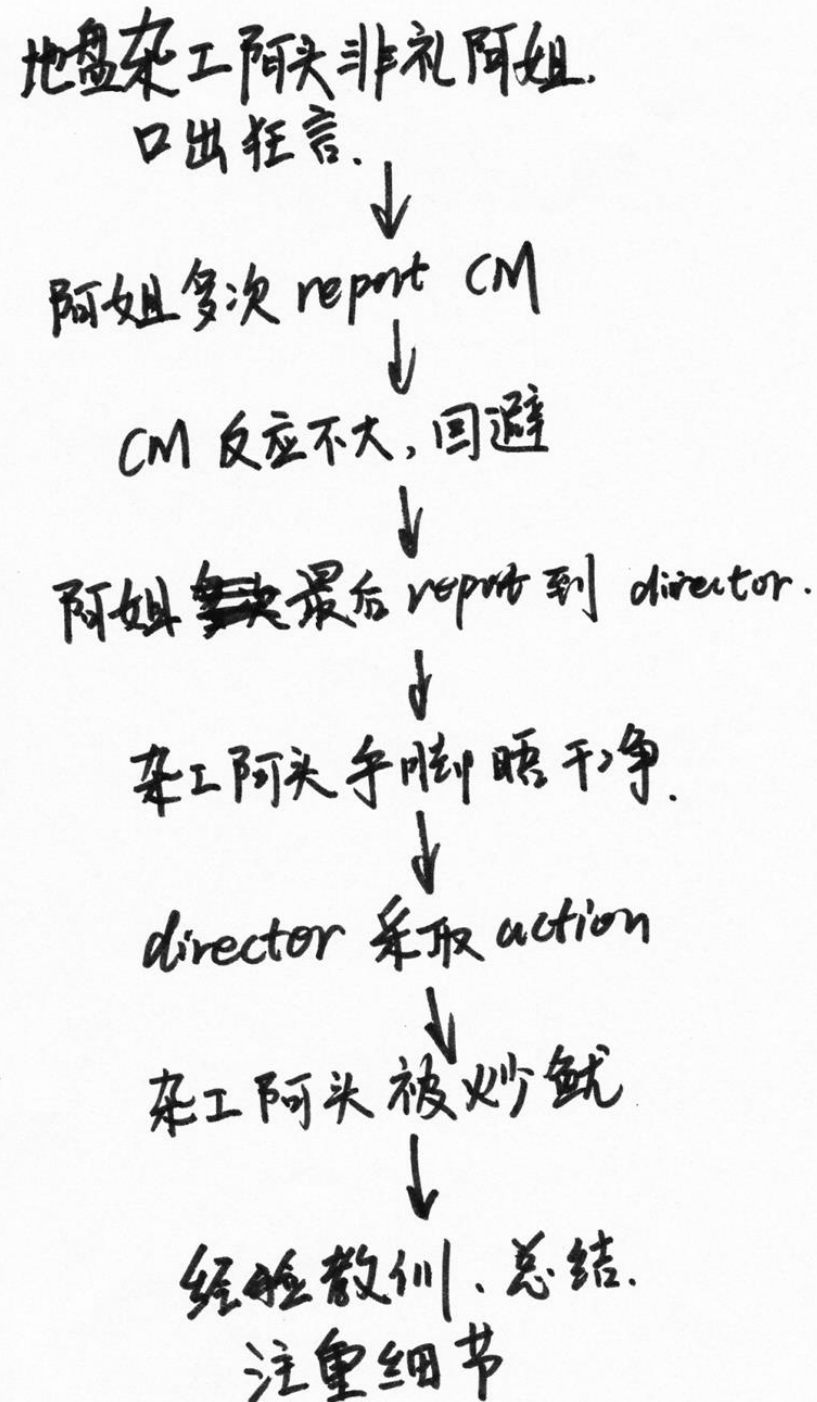 地盘杂工阿头非礼阿姐.
口出狂言.
阿姐多次 report CM
CM 反应不大, 回避
阿姐最后 report 到 director.
杂工阿头手脚唔干净.
director 采取 action
杂工阿头被炒鱿
经验教训、总结.
注重细节